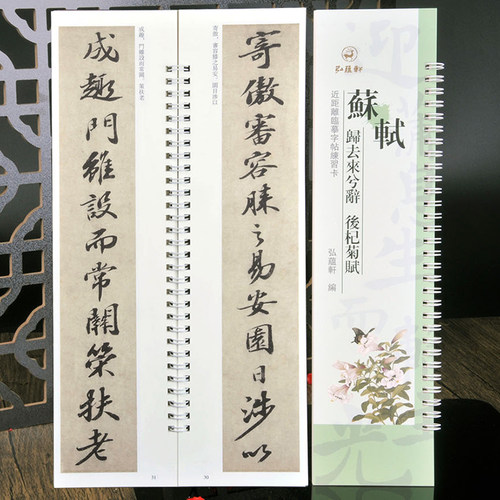 寄傲審容膝之易安園日涉以
寄傲，審容膝之易安。園日涉以
30
成趣門雖設而常關策扶老
成趣，門雖設而常關。策扶老
31
弘蘊軒
蘇軾
歸去來兮辭 後杞菊賦
近距離臨摹字帖練習卡
弘蘊軒 編